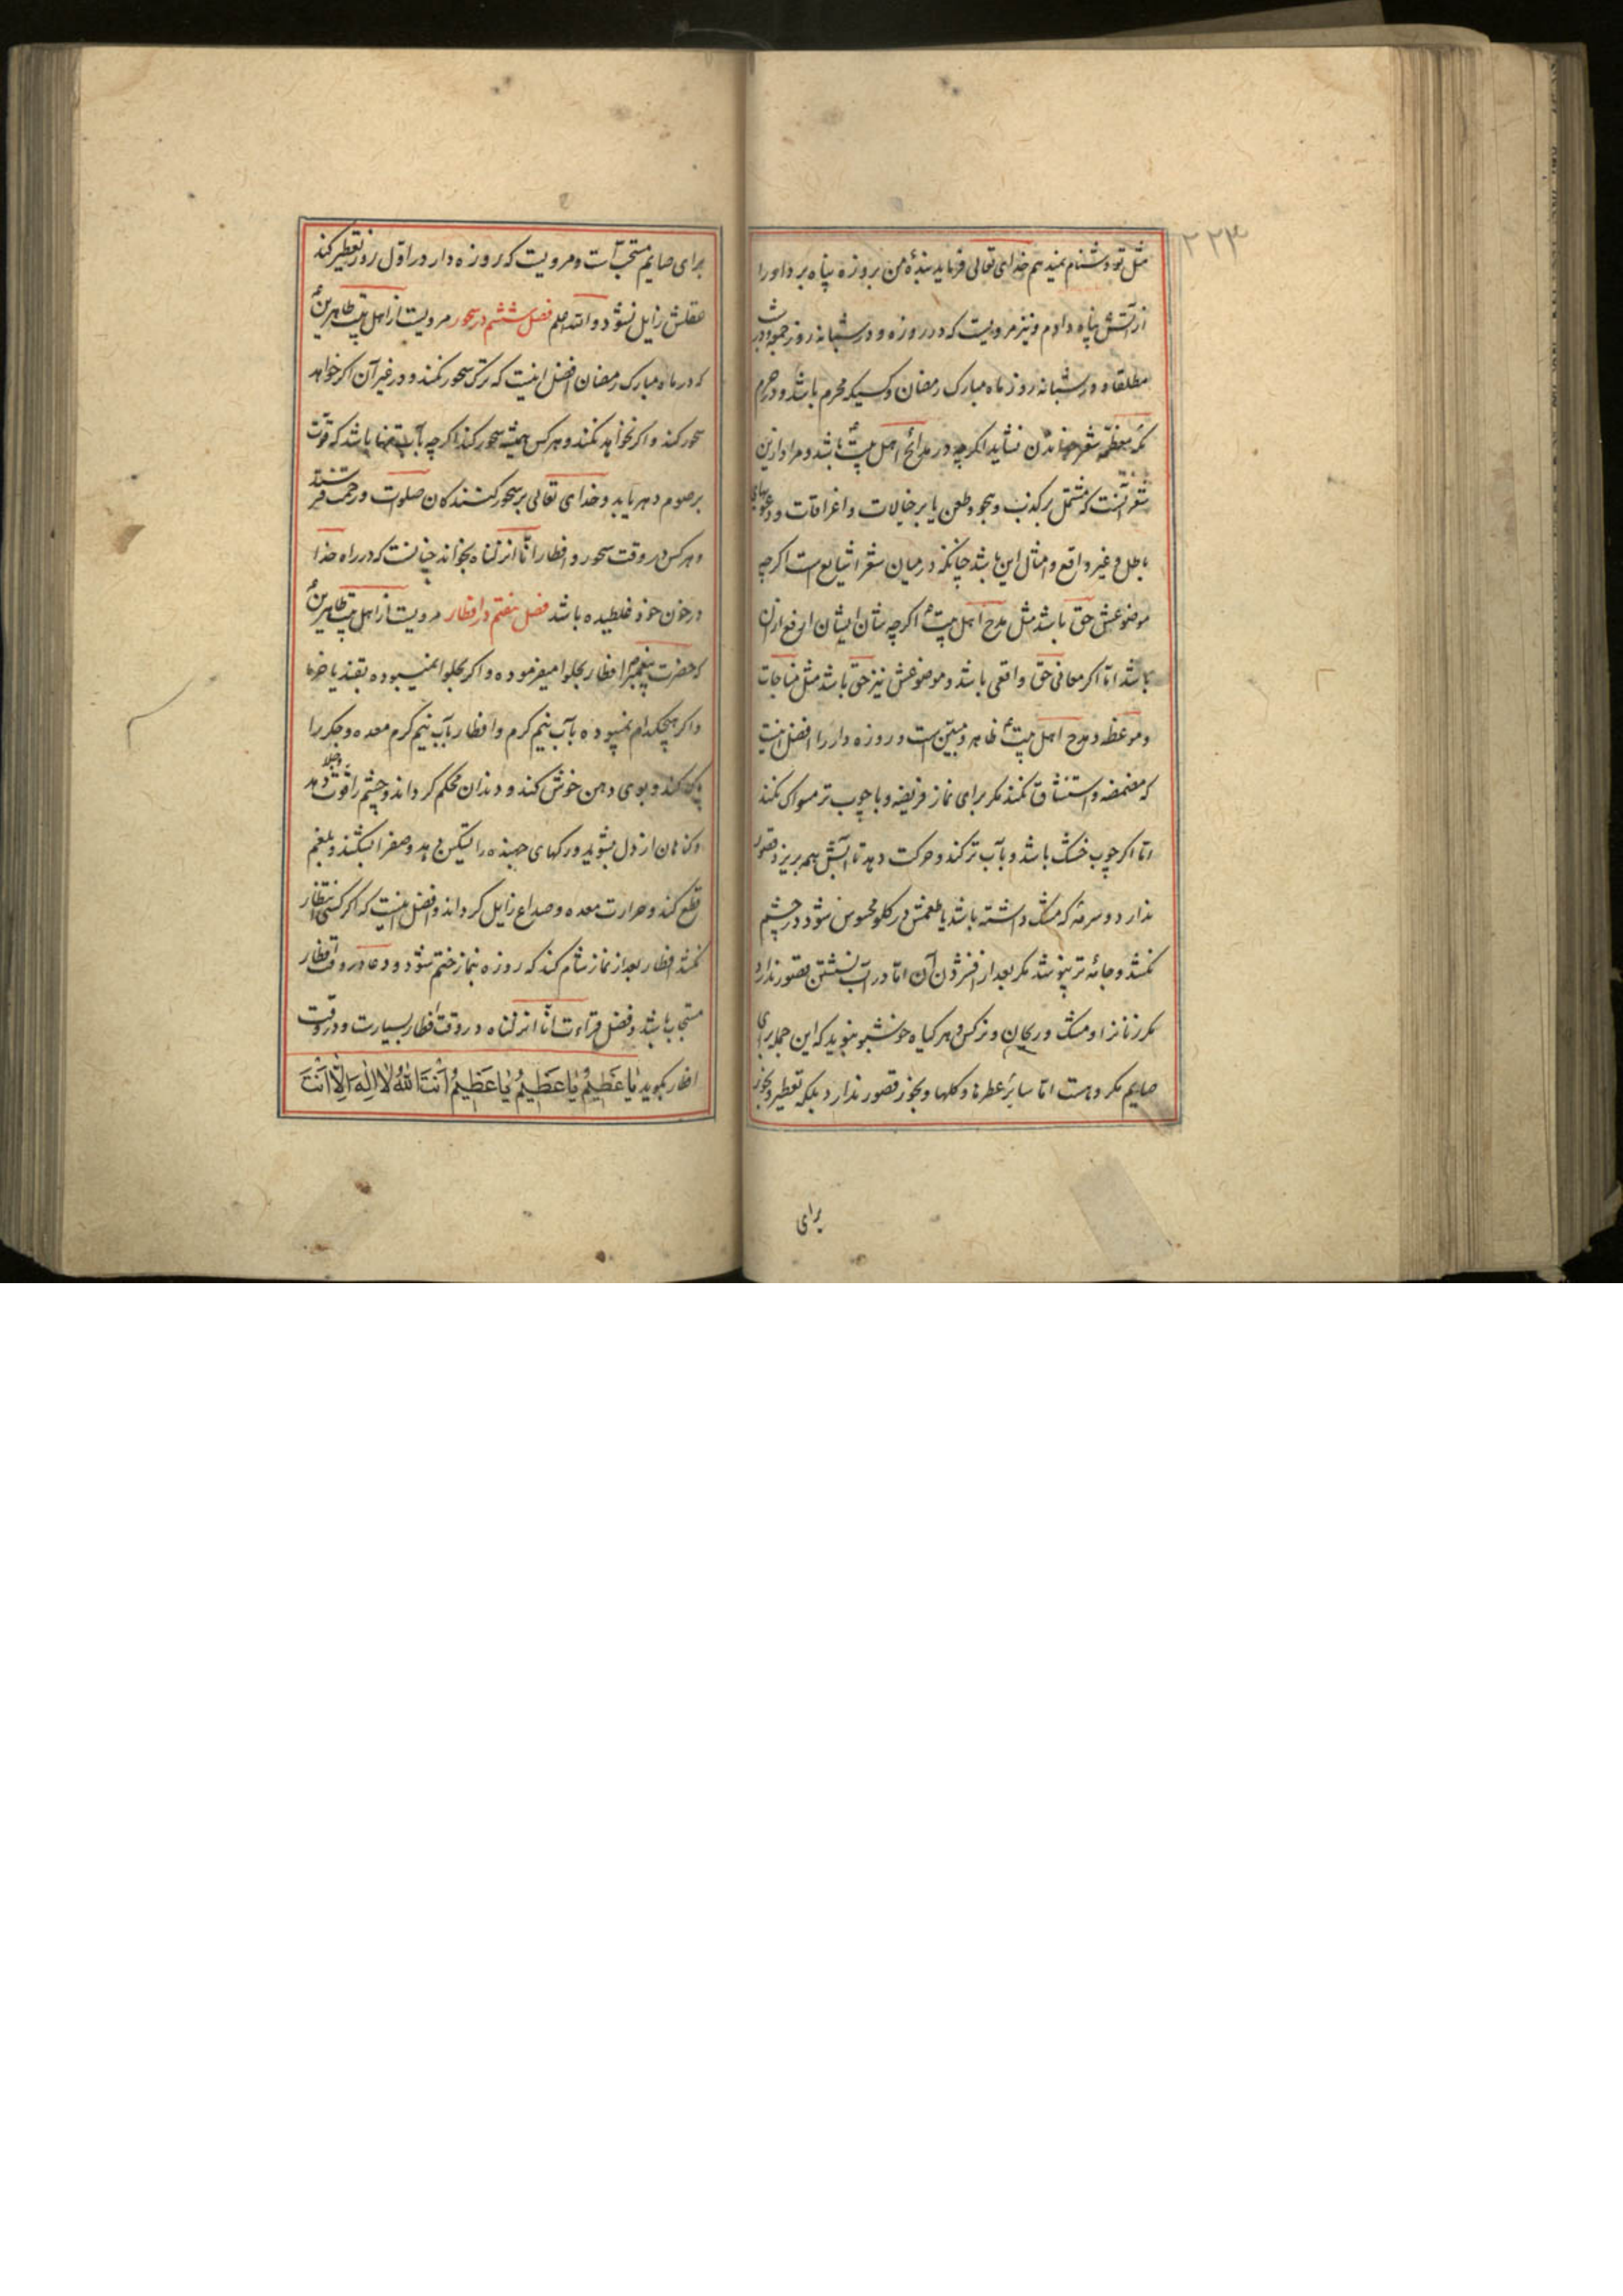 ۲۲۴
مثل تو دشنام نمیدهم خدای تعالی فرماید بندهٔ من بروزه پناه برد او را
از آتش پناه دادم و نیز مرویست که در روزه و در شبانه روز جمعه و در شب
مطلقا و در شبانه روز ماه مبارک رمضان و کسیکه محرم باشد و در حرم
مکه معظمه شعر خواندن نشاید اگرچه در مدائح اهل بیت باشد و مراد ازین
شعر آنست که مشتمل بر کذب و هجو و طعن یا بر خیالات و اغراقات و دعویهای
باطل و غیر واقع و امثال این باشد چنانکه در میان شعرا شایع است اگرچه
موضوعش حق باشد مثل مدح اهل بیت ع اگرچه شان ایشان ارفع از آن
باشد اما اگر معانی حق واقعی باشد و موضوعش نیز حق باشد مثل مناجات
و موعظه و مدح اهل بیت ع ظاهر و مبین است و روزه دار را افضل اینست
که مضمضه و استنشاق نکند مگر برای نماز فریضه و با چوب تر مسواک نکند
اما اگر چوب خشک باشد و بآب تر کند و حرکت دهد تا آبش بهم بریزد قصور
ندارد و سرمهٔ که مشک داشته باشد یا طعمش در گلو محسوس شود در چشم
نکشد و جامهٔ تر نپوشد مگر بعد از فشردن آن اما در آب نشستن قصور ندارد
مگر زنانرا و مشک و ریحان و نرگس و هر گیاه خوشبو نبوید که این جمله برای
صایم مکروهست اما سایر عطرها و گلها و بخور قصور ندارد بلکه تعطیر و بخور
برای
برای صایم مستحب است و مرویست که روزه دار در اول روز تعطیر کند
عقلش زایل نشود والله اعلم فصل ششم در سحور مرویست از اهل بیت طاهرین ع
که در ماه مبارک رمضان افضل اینست که ترک سحور نکند و در غیر آن اگر خواهد
سحور کند و اگر نخواهد نکند و هر کس همیشه سحور کند اگرچه بآب تنها باشد که قوت
بر صوم دهر یابد و خدای تعالی بر سحور کنندکان صلوت و رحمت فرستد
و هر کس در وقت سحور و افطار انا انزلناه بخواند چنانست که در راه خدا
در خون خود غلطیده باشد فصل هفتم در افطار مرویست از اهل بیت طاهرین ع
که حضرت پیغمبر افطار بحلوا میفرموده و اگر حلوا نمیبوده بقند یا خرما
و اگر هیچکدام نمیبوده بآب نیم گرم و افطار بآب نیم گرم معده و جگر را
پاک کند و بوی دهن خوش کند و دندان محکم گرداند و چشم را قوت و جلا دهد
و گناهان از دل بشوید و رگهای جهنده را تسکین دهد و صفرا بشکند و بلغم
قطع کند و حرارت معده و صداع زایل گرداند و افضل اینست که اگر کسی انتظار
نکشد افطار بعد از نماز شام کند که روزه بنماز ختم شود و دعا در وقت افطار
مستجاب باشد و فضل قراءت انا انزلناه در وقت افطار بسیارست و در وقت
افطار بگوید یٰا عَظیمُ یٰا عَظیمُ یٰا عَظیمُ اَنتَ اللهُ لٰا اِلٰهَ اِلّٰا اَنتَ